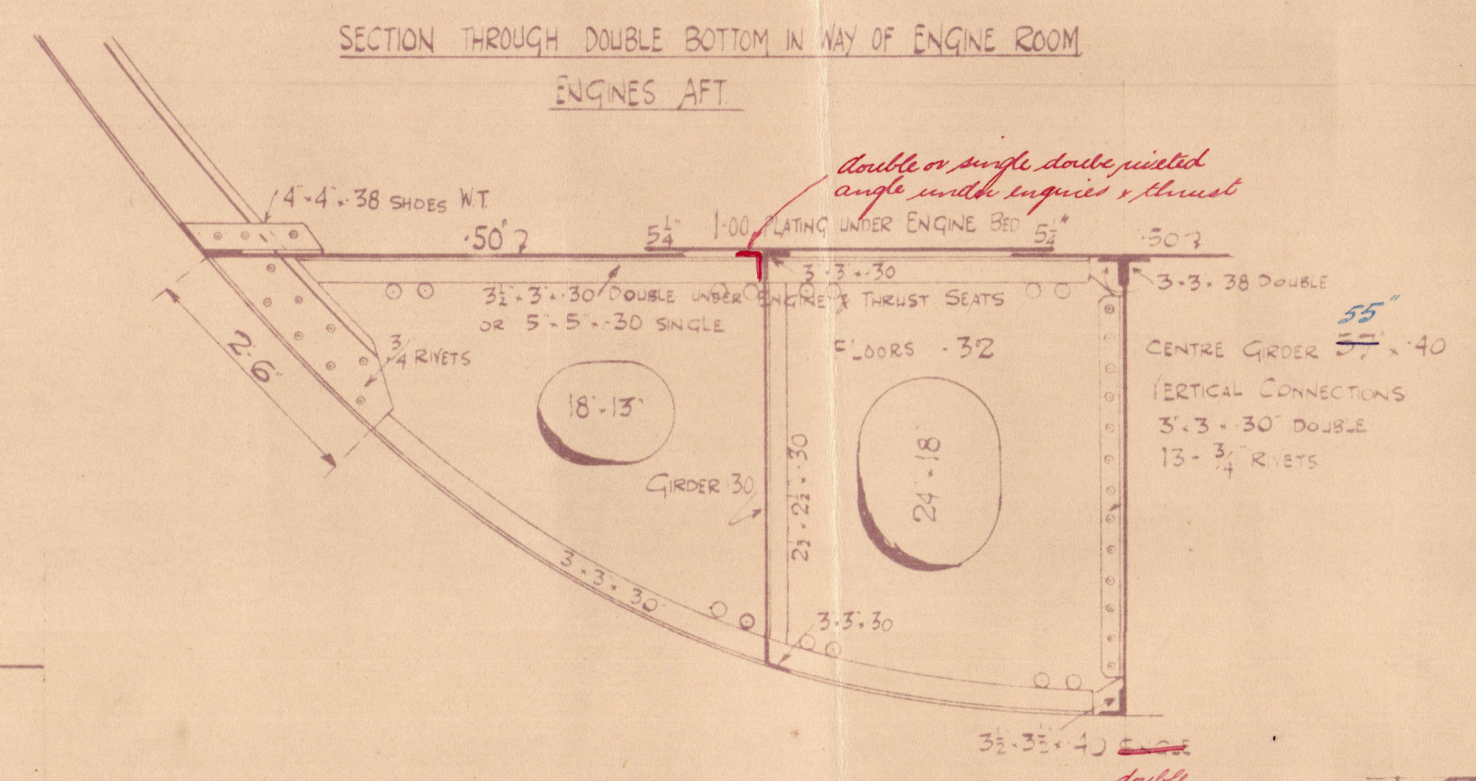 SECTION THROUGH DOUBLE BOTTOM IN WAY OF ENGINE ROOM
ENGINES AFT.
double or single doube riveted
angle under engines & thrust
4"×4"×·38 SHOES W.T.
·50"
5¼"
1·00 PLATING UNDER ENGINE BED
5¼"
·50
3"×3"×·30
3"×3"×·38 DOUBLE
3½"×3"×·30 DOUBLE UNDER ENGINE & THRUST SEATS
OR 5"×5"×·30 SINGLE
55"
FLOORS ·32
CENTRE GIRDER 57"×·40
¾ RIVETS
2'·6"
VERTICAL CONNECTIONS
18"×13"
3"×3"×·30" DOUBLE
13-¾" RIVETS
GIRDER ·30
2½×2½×·30
24"×18"
3"×3"×30
3"×3"×30
3½"×3½"×·40 SINGLE
double